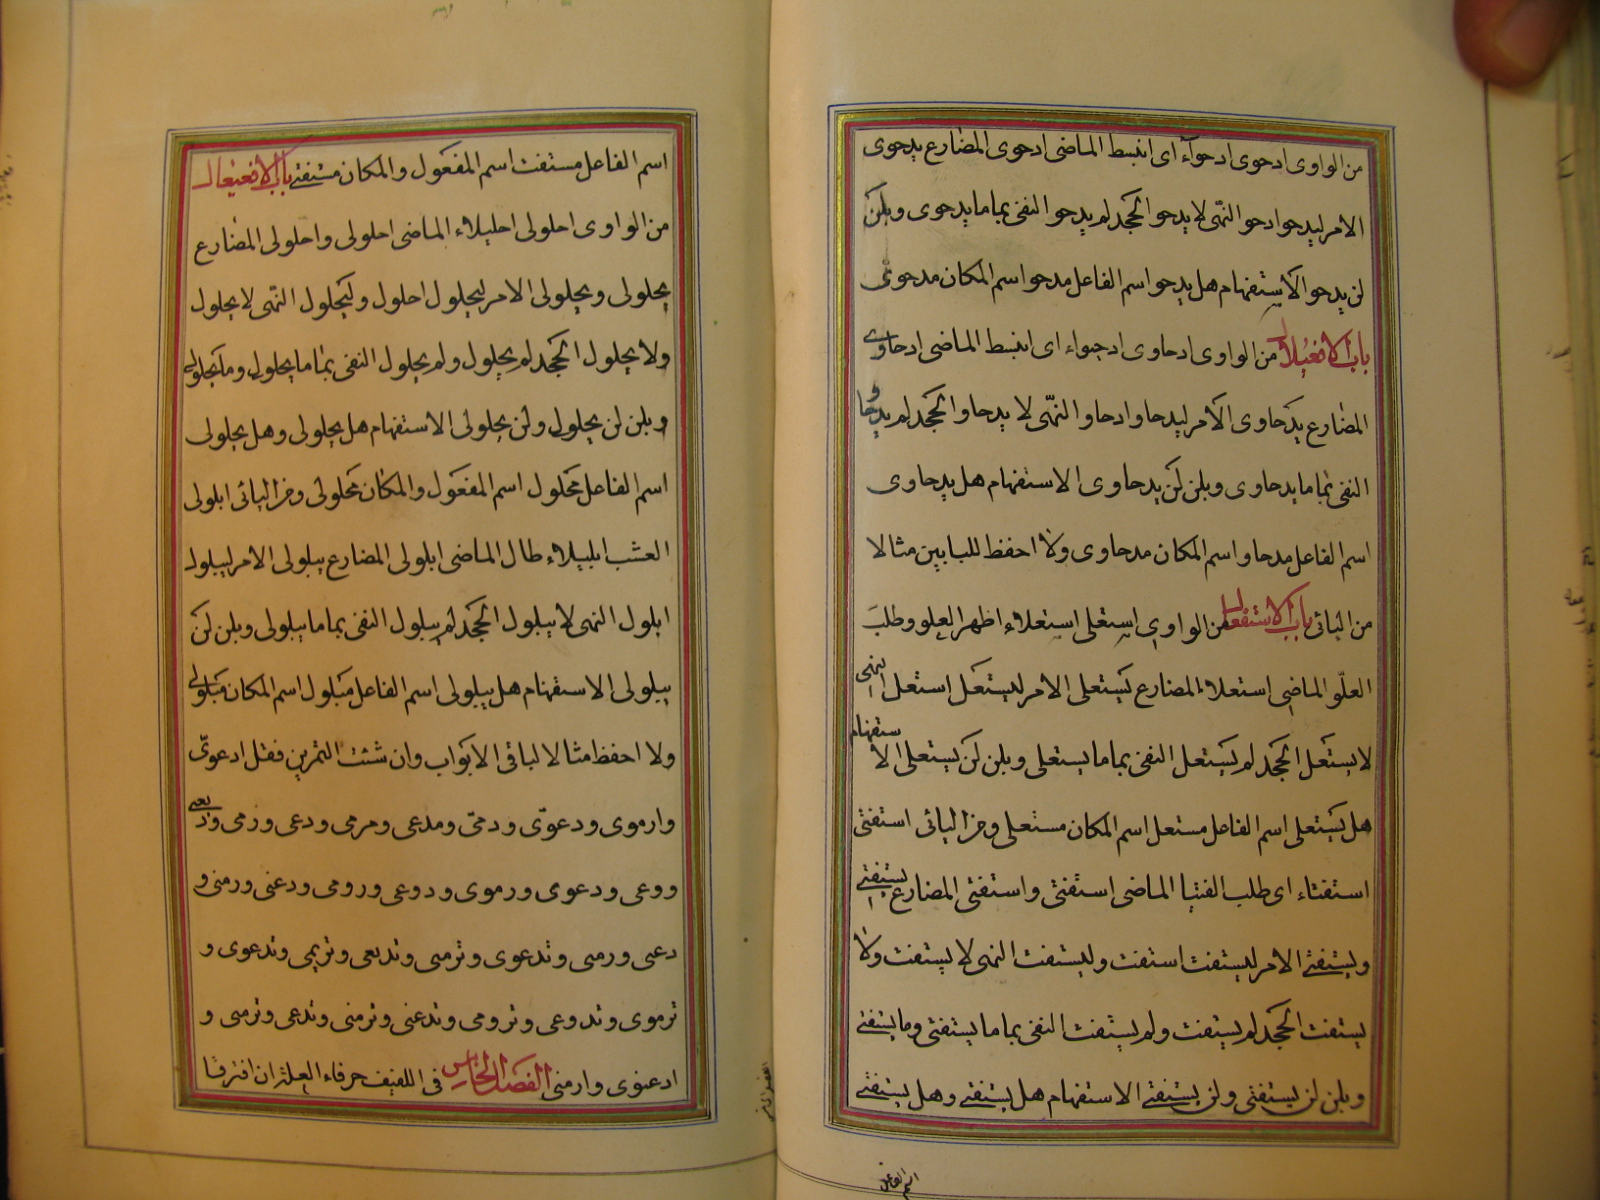 من الواوی ادحوی ادحوآء ای انبسط الماضی ادحوی المضارع یدحوی
الامر لیدحو ادحو النهی لا یدحو الجحد لم یدحو النفی بما ما یدحوی وبلن
لن یدحو الاستفهام هل یدحو اسم الفاعل مدحو اسم المکان مدحوی
باب الافعیلال من الواوی ادحاوی ادحیواء ای انبسط الماضی ادحاوی
المضارع یدحاوی الامر لیدحاو ادحاو النهی لا یدحاو الجحد لم یدحاو
النفی بما ما یدحاوی وبلن لن یدحاوی الاستفهام هل یدحاوی
اسم الفاعل مدحاو اسم المکان مدحاوی ولا احفظ للبابین مثالا
من الیائی باب الاستفعال من الواوی استعلی استعلاء اظهر العلو وطلب
العلو الماضی استعلاء المضارع یستعلی الامر لیستعل استعل النهی
لا یستعل الجحد لم یستعل النفی بما ما یستعلی وبلن لن یستعلی الاستفهام
هل یستعلی اسم الفاعل مستعل اسم المکان مستعلی ومن الیائی استفتی
استفتاء ای طلب الفتیا الماضی استفتی واستفتی المضارع یستفتی
ویستفتی الامر لیستفت استفت ولیستفت النهی لا یستفت ولا
یستفت الجحد لم یستفت ولم یستفت النفی بما ما یستفتی وما یستفتی
وبلن لن یستفتی ولن یستفتی الاستفهام هل یستفتی وهل یستفتی
اسم الفاعل
اسم الفاعل مستفت اسم المفعول والمکان مستفتی باب الافعیعال
من الواوی احلولی احلیلاء الماضی احلولی واحلولی المضارع
یحلولی ویحلولی الامر لیحلول احلول ولیحلول النهی لا یحلول
ولا یحلول الجحد لم یحلول ولم یحلول النفی بما ما یحلولی وما یحلولی
وبلن لن یحلولی ولن یحلولی الاستفهام هل یحلولی وهل یحلولی
اسم الفاعل محلول اسم المفعول والمکان محلولی ومن الیائی ابلولی
العشب ابلیلاء طال الماضی ابلولی المضارع یبلولی الامر لیبلول
ابلول النهی لا یبلول الجحد لم یبلول النفی بما ما یبلولی وبلن لن
یبلولی الاستفهام هل یبلولی اسم الفاعل مبلول اسم المکان مبلولی
ولا احفظ مثالا لباقی الابواب وان شئت التمرین فقل ادعوی
وارموی ودعوی ودمی ومدعی ومرمی ودعی ورمی
ووعی ودعوی ورموی ودوعی ورومی ودعنی ورمنی و
دعی ورمی وتدعوی وترمی وتدیعی وتریمی وتدعوی و
ترموی وتدوعی وترومی وتدعنی وترمنی وتدعی وترمی و
ادعنوی وارمنی الفصل الخامس فی اللفیف حرفاء العلة ان افترقا